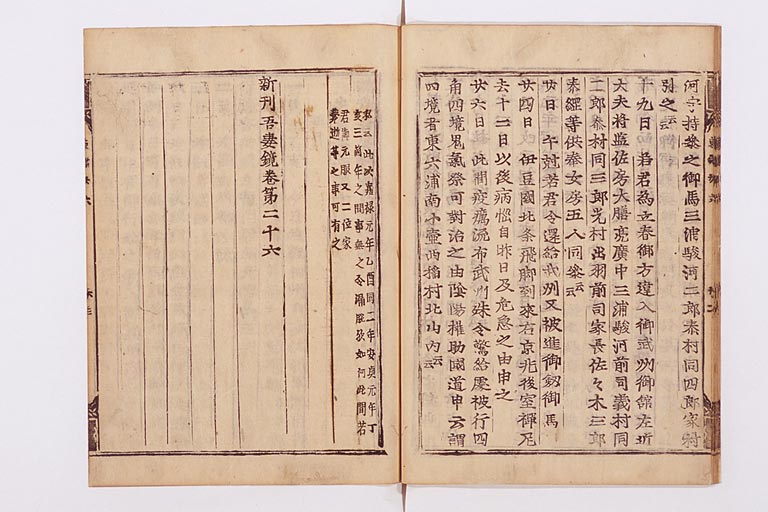 河守持参之御馬三浦駿河二郎泰村同四郎家村
別之云云
十九日 若君為立春御方違入御武州御館左近
大夫将監佐房大膳亮廣中三浦駿河前司義村同
二郎泰村同三郎光村出羽前司家長佐々木三郎
泰経等供奉女房五人同参云云
廿日 午剋若君令還給武州又被進御剱御馬
廿四日 伊豆國北条飛脚到來右京兆後室禅尼
去十二日以後病悩自昨日及危急之由申之
廿六日 此間疫癘流布武州殊令驚給處被行四
角四境鬼氣祭可對治之由陰陽権助國道申云謂
四境者東六浦南小壺西稲村北山内云云
本云此次嘉禄元年乙酉同二年安貞元年丁
亥三箇年之間事無之令漏脱歟如何此間若
君御元服又二位家
薨逝等之事可有之
新刊吾妻鏡卷第二十六